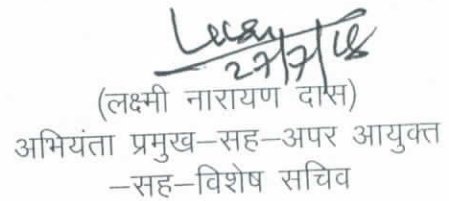 27/7/18
(लक्ष्मी नारायण दास)
अभियंता प्रमुख–सह–अपर आयुक्त
–सह–विशेष सचिव